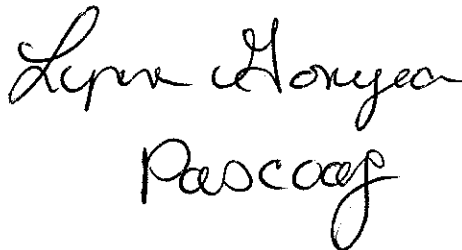 Lynn Gonyea
Pascoag